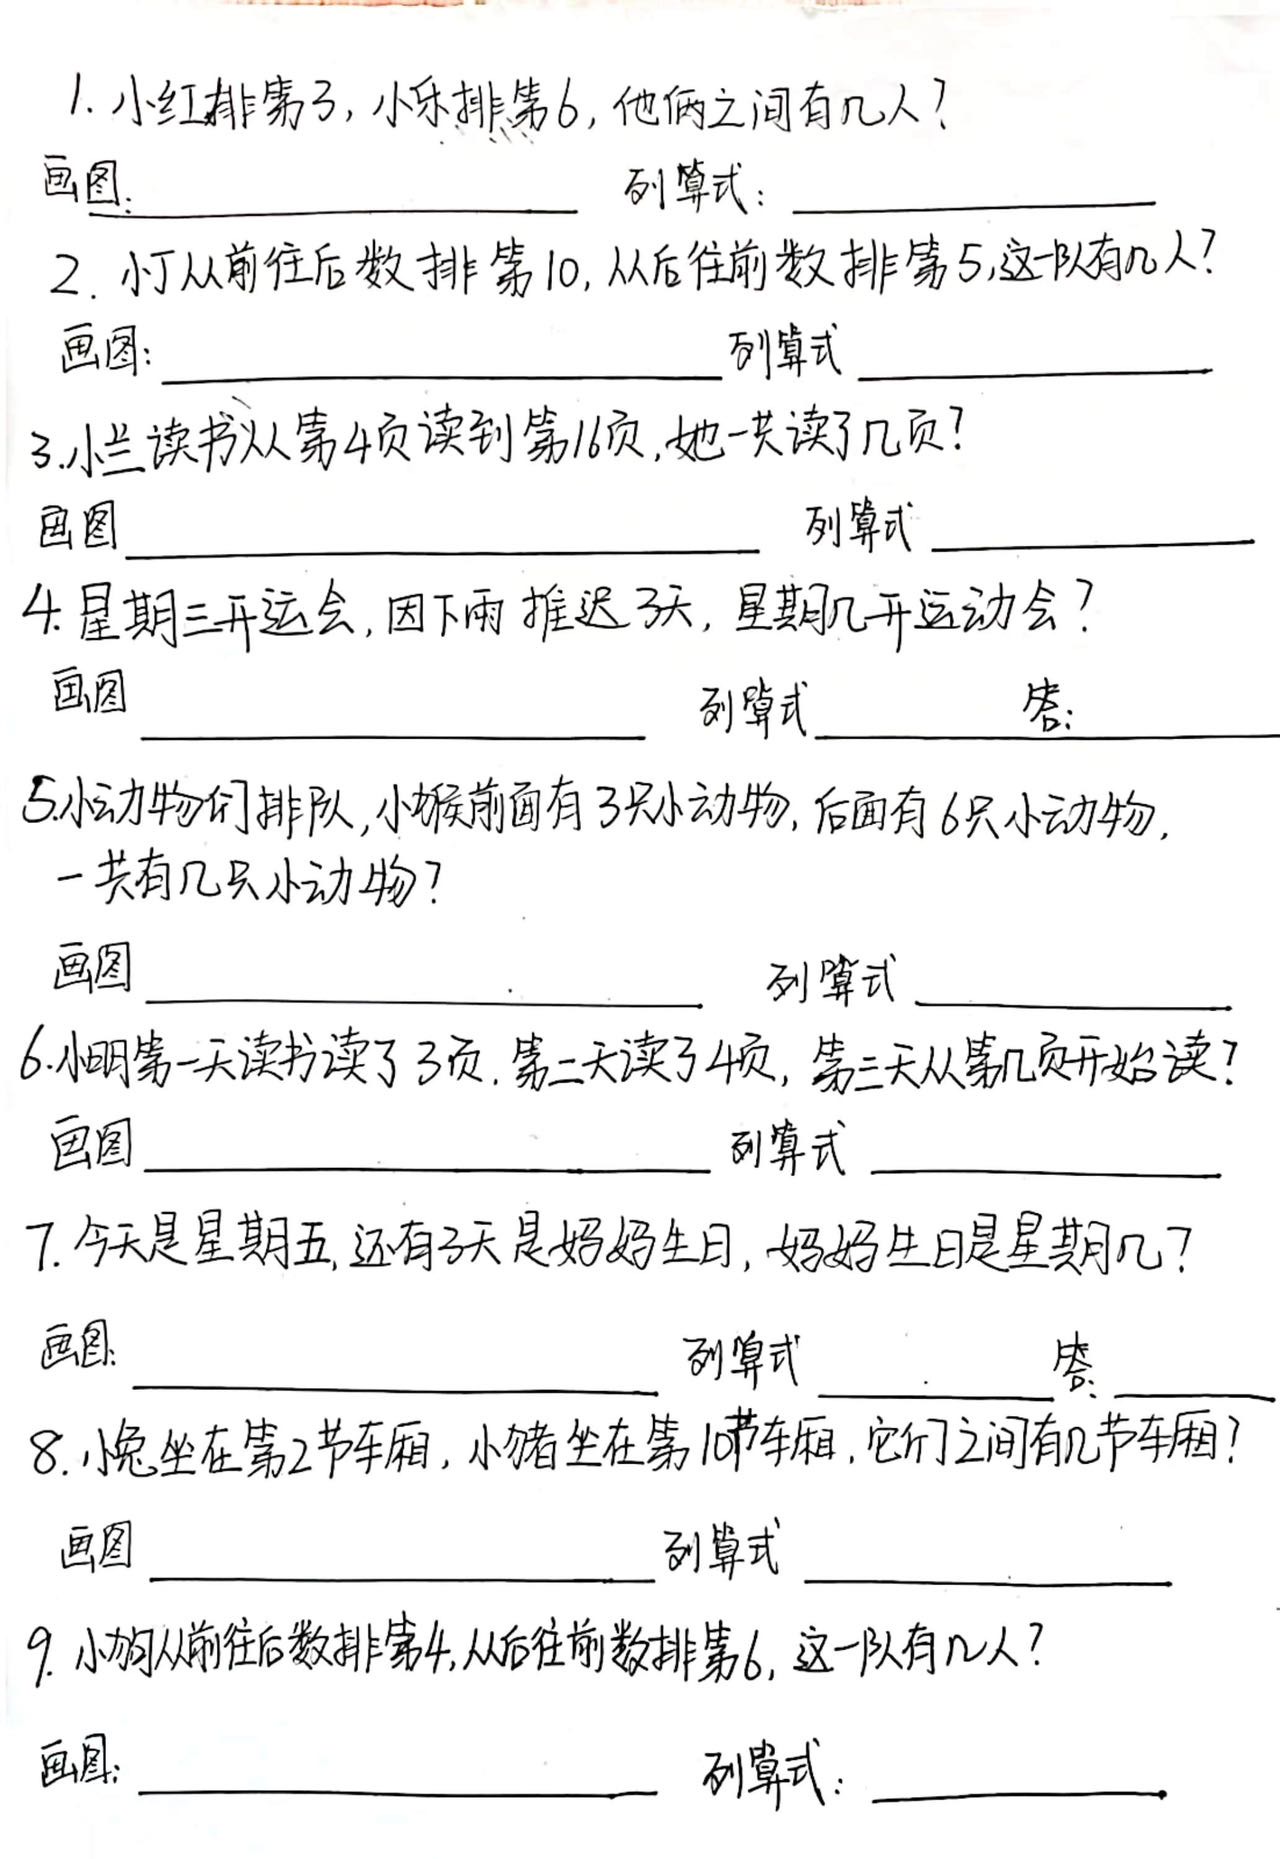 1. 小红排第3, 小乐排第6, 他俩之间有几人?
画图: 列算式:
2. 小丁从前往后数排第10, 从后往前数排第5,这一队有几人?
画图: 列算式
3.小兰读书从第4页读到第16页,她一共读了几页?
画图 列算式
4. 星期三开运会, 因下雨推迟3天, 星期几开运动会?
画图 列算式 答:
5.小动物们排队,小猴前面有3只小动物, 后面有6只小动物,
一共有几只小动物?
画图 列算式
6.小明第一天读书读了3页. 第二天读了4页, 第三天从第几页开始读?
画图 列算式
7. 今天是星期五, 还有3天是妈妈生日, 妈妈生日是星期几?
画图: 列算式 答:
8. 小兔坐在第2节车厢, 小猪坐在第10节车厢, 它们之间有几节车厢?
画图 列算式
9. 小狗从前往后数排第4,从后往前数排第6, 这一队有几人?
画图: 列算式: